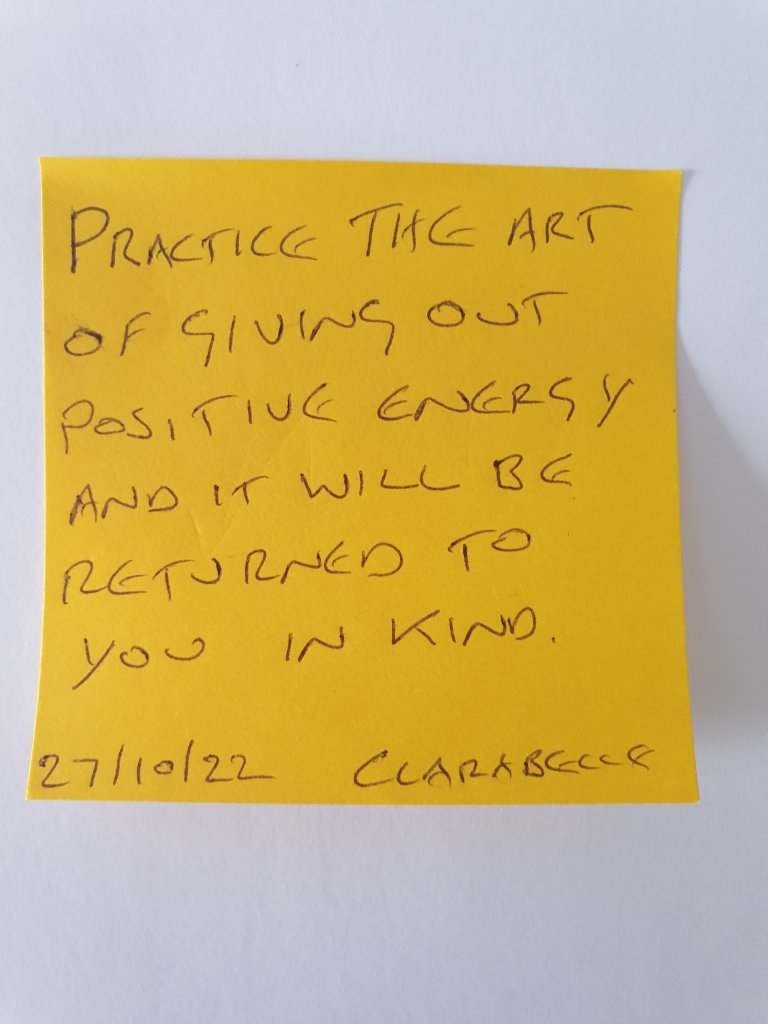 PRACTICE THE ART
OF GIVING OUT
POSITIVE ENERGY
AND IT WILL BE
RETURNED TO
YOU IN KIND.
27/10/22 CLARABELLE